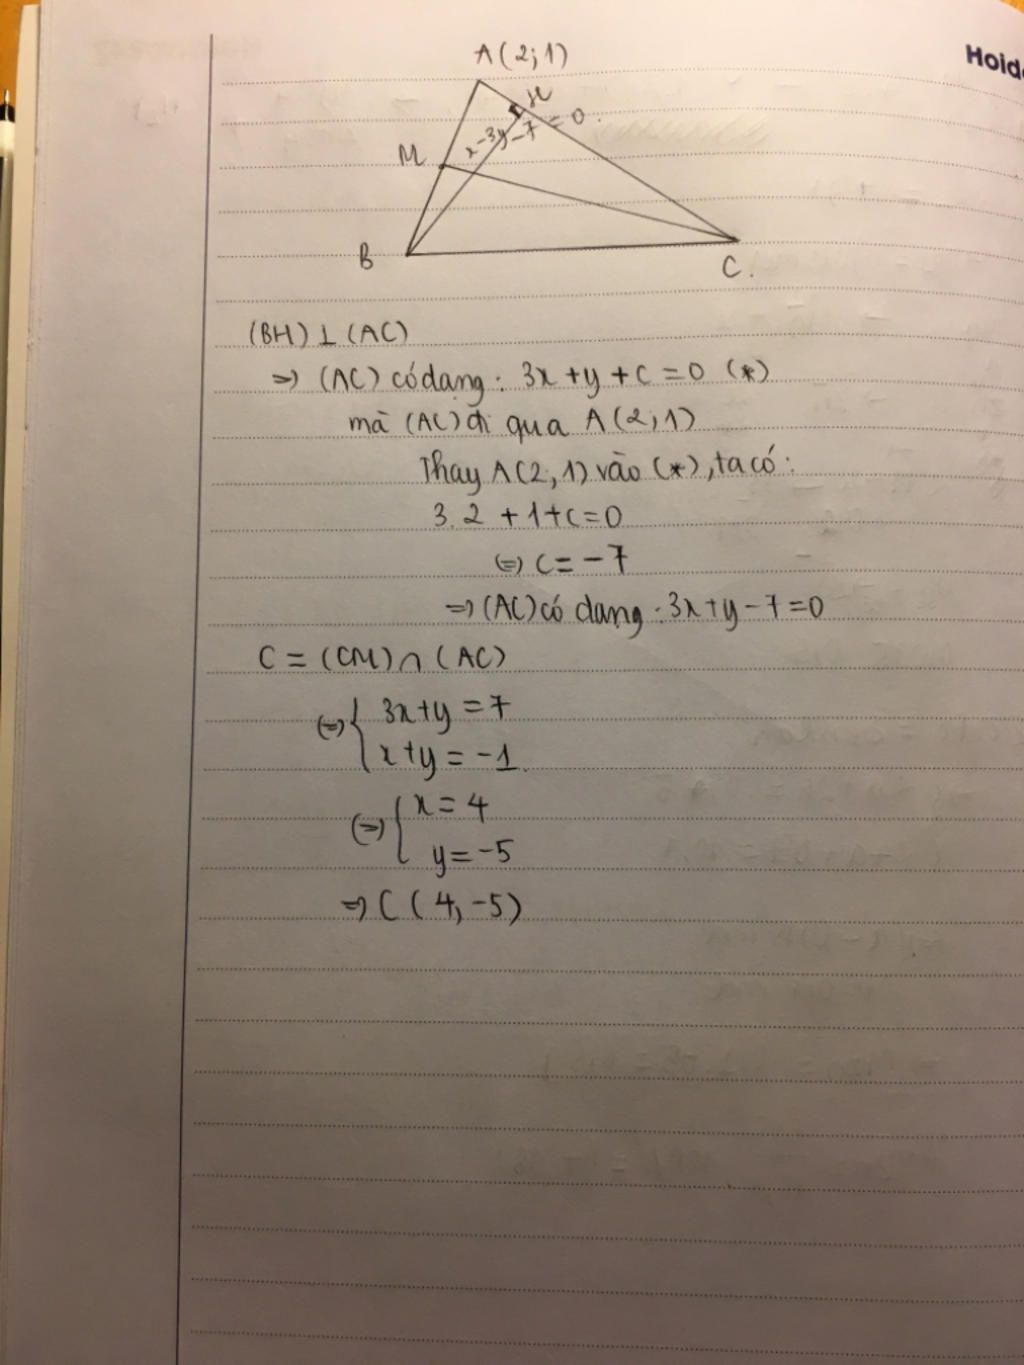 Hoid
A(2;1)
H
x-3y-7=0.
M
B
C.
(BH)⊥(AC)
=> (AC) có dạng: 3x+y+c=0 (*)
mà (AC) đi qua A(2,1)
Thay A(2,1) vào (*), ta có:
3.2 +1+c=0
(=) c=-7
=> (AC) có dạng: 3x+y-7=0
C = (CM)∩(AC)
(=) { 3x+y=7
x+y=-1.
(=) { x=4
y=-5
=> C(4,-5)